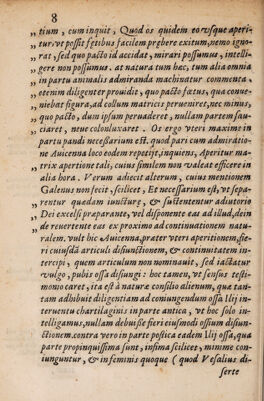 8
„ tium, cum inquit, Quod os quidem eousque aperi-
„ tur, vt possit fœtibus facilem præbere exitum, nemo igno-
„ rat, sed quo pacto id accidat, mirari possumus, intelli-
„ gere non possumus. at natura tum hæc, tum alia omnia
„ in partu animalis admiranda machinatur commenta,
„ etenim diligenter prouidit, quo pacto fœtus, qua conue-
„ niebat figura, ad collum matricis perueniret, nec minus,
„ quo pacto, dum ipsum peruaderet, nullam partem sau-
„ ciaret, neue colonluxaret. Os ergo vteri maxime in
partu pandi necessarium est. quod pari cum admiratio-
ne Auicenna loco eodem reperit, inquiens, Aperitur ma-
trix apertione tali, cuius similem non valeat efficere in
alia hora. Verum adiecit alterum, cuius mentionem
Galenus non fecit, scilicet, Et necessarium est, vt sepa-
rentur quædam iuncturæ, & sustententur adiutorio
Dei excelsi præparante, vel disponente eas ad illud, dein
de reuertente eas ex proximo ad continuationem natu-
ralem. vult hic Auicenna, præter vteri apertionem, fie-
ri cuiusdā articuli disiunctionem, & continuitatem in-
tercipi, quem articulum non nominauit, sed iactatur
vulgo, pubis ossa disiungi: hoc tamen, vt sensus testi-
monio caret, ita est à naturæ consilio alienum, quæ tan-
tam adhibuit diligentiam ad coniungendum ossa Ilij in-
teruentu chartilaginis in parte antica, vt hoc solo in-
telligamus, nullam debuisse fieri eiusmodi ossium disiun-
ctionem. contra vero in parte postica eadem Ilij ossa, qua
parte propinquissima sunt, infima scilicet, minime con-
iunguntur, & in feminis quoque (quod Vesalius di-
serte